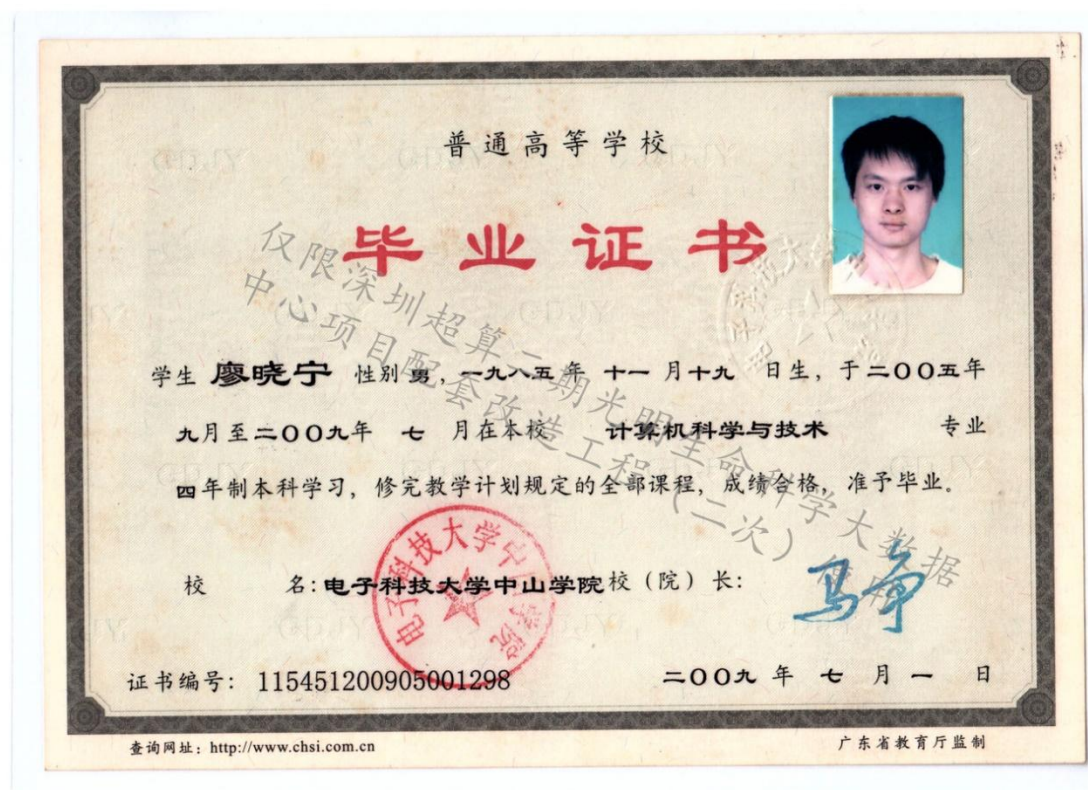 普通高等学校
毕业证书
仅限深圳超算二期光明生命科学大数据
中心项目配套改造工程（二次）使用
学生 廖晓宁 性别 男，一九八五年 十一 月十九 日生，于二〇〇五年
九月至二〇〇九年 七 月在本校 计算机科学与技术 专业
四年制本科学习，修完教学计划规定的全部课程，成绩合格，准予毕业。
电子科技大学中山学院
校 名：电子科技大学中山学院 校（院）长：
证书编号：115451200905001298 二〇〇九 年 七 月 一 日
查询网址：http://www.chsi.com.cn 广东省教育厅监制